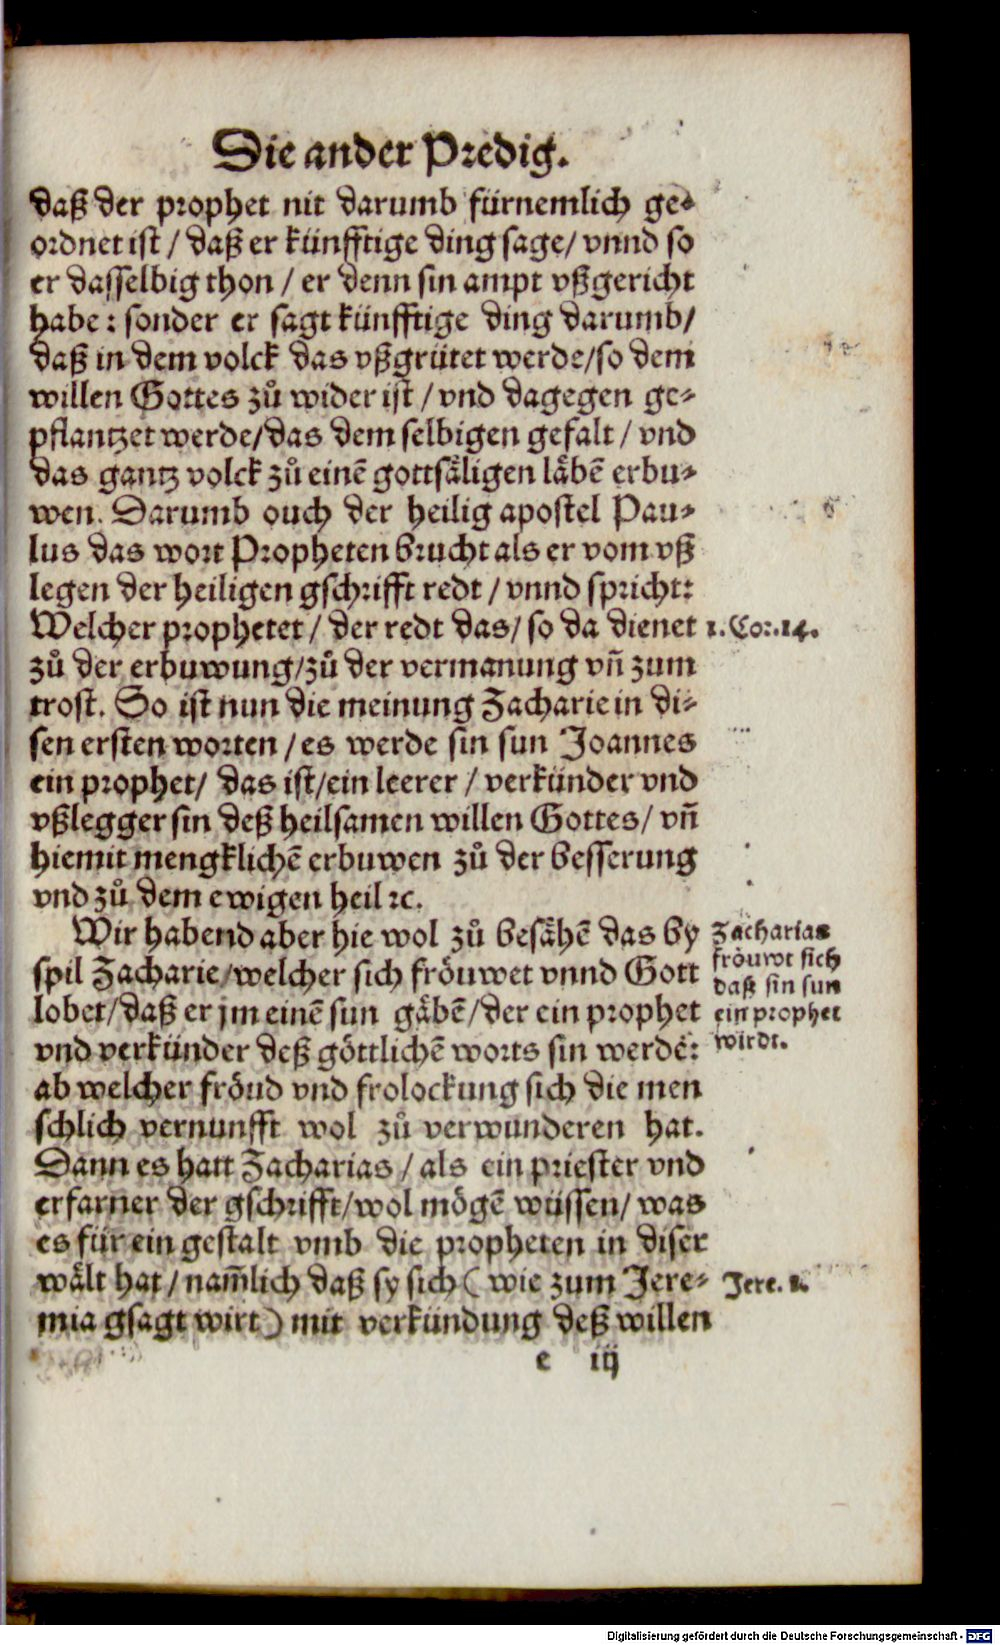 Die ander Predig.
daß der prophet nit darumb fürnemlich ge-
ordnet ist / daß er künfftige ding sage / vnnd so
er dasselbig thon / er denn sin ampt vßgericht
habe : sonder er sagt künfftige ding darumb /
daß in dem volck das vßgrütet werde / so dem
willen Gottes zů wider ist / vnd dagegen ge-
pflantzet werde / das dem selbigen gefalt / vnd
das gantz volck zů einẽ gottsäligen läbẽ erbu-
wen. Darumb ouch der heilig apostel Pau-
lus das wort Propheten brucht als er vom vß
legen der heiligen gschrifft redt / vnnd spricht:
Welcher prophetet / der redt das / so da dienet
1. Cor. 14.
zů der erbuwung / zů der vermanung vñ zum
trost. So ist nun die meinung Zacharie in di-
sen ersten worten / es werde sin sun Joannes
ein prophet / das ist / ein leerer / verkünder vnd
vßlegger sin deß heilsamen willen Gottes / vñ
hiemit mengklichẽ erbuwen zů der besserung
vnd zů dem ewigen heil ꝛc.
Wir habend aber hie wol zů besähẽ das by
spil Zacharie / welcher sich fröuwet vnnd Gott
lobet / daß er jm einẽ sun gäbẽ / der ein prophet
vnd verkünder deß göttlichẽ worts sin werde:
ab welcher fröud vnd frolockung sich die men
schlich vernunfft wol zů verwunderen hat.
Dann es hatt Zacharias / als ein priester vnd
erfarner der gschrifft / wol mögẽ wüssen / was
es für ein gestalt vmb die propheten in diser
wält hat / nam̃lich daß sy sich ( wie zum Jere-
mia gsagt wirt ) mit verkündung deß willen
Zacharias
fröuwt sich
daß sin sun
ein prophet
wirdt.
Jere. 1.
e iij
Digitalisierung gefördert durch die Deutsche Forschungsgemeinschaft - DFG